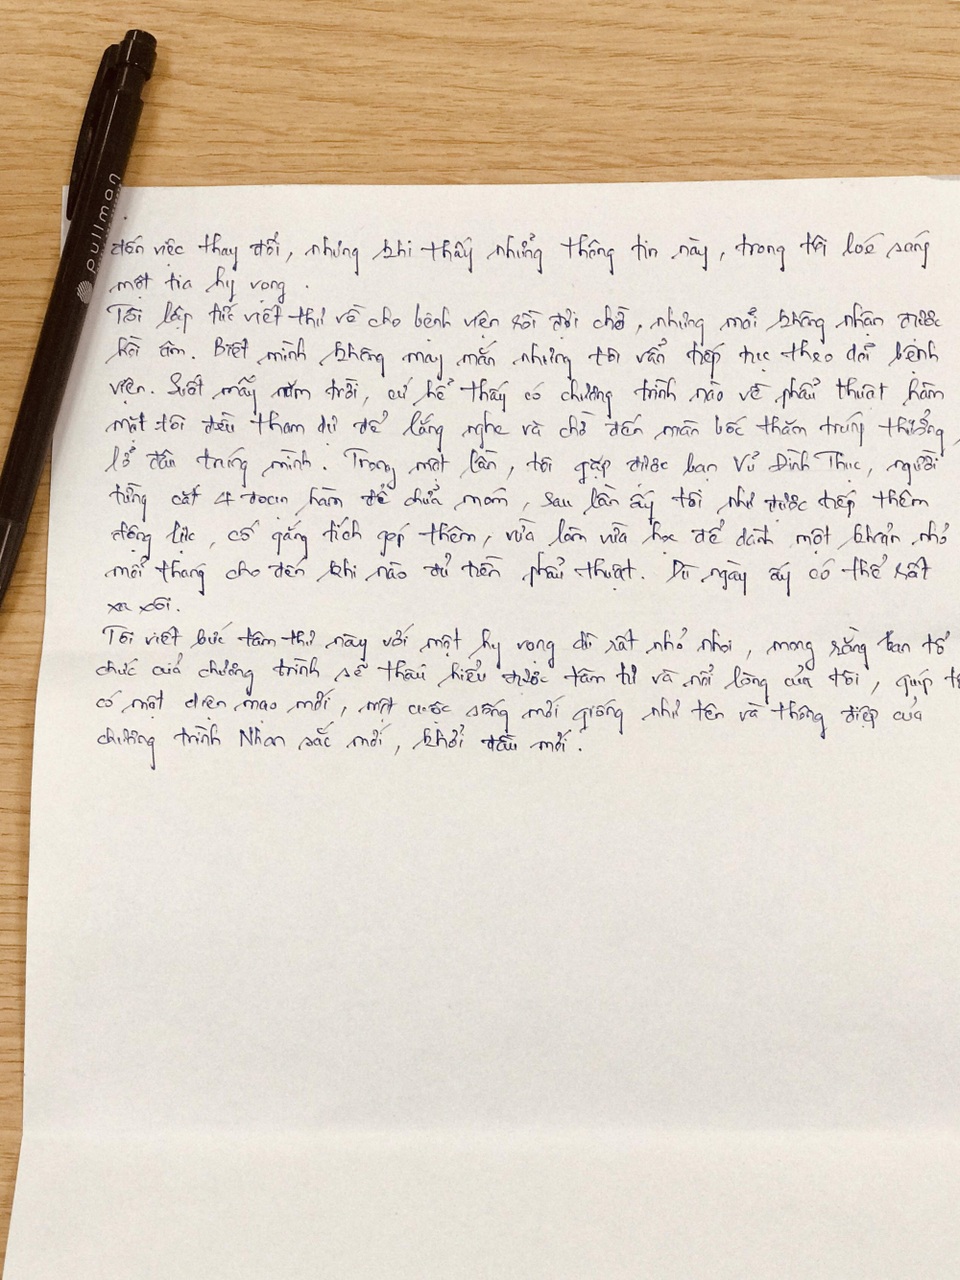 pullman
đến việc thay đổi, nhưng khi thấy những thông tin này, trong tôi loé sáng
một tia hy vọng.
Tôi lập tức viết thư về cho bệnh viện rồi đợi chờ, nhưng mãi không nhận được
hồi âm. Biết mình không may mắn nhưng tôi vẫn tiếp tục theo dõi bệnh
viện. Suốt mấy năm trời, cứ hể thấy có chương trình nào về phẩu thuật hàm
mặt tôi đều tham dự để lắng nghe và chờ đến màn bốc thăm trúng thưởng,
lỡ đâu trúng mình. Trong một lần, tôi gặp được bạn Vũ Đình Thục, người
từng cắt 4 đoạn hàm để chữa móm, sau lần ấy tôi như được tiếp thêm
động lực, cố gắng tích góp thêm, vừa làm vừa học để dành một khoản nhỏ
mỗi tháng cho đến khi nào đủ tiền phẩu thuật. Dù ngày ấy có thể rất
xa xôi.
Tôi viết bức tâm thư này với một hy vọng dù rất nhỏ nhoi, mong rằng ban tổ
chức của chương trình sẽ thấu hiểu được tâm tư và nỗi lòng của tôi, giúp
có một diện mạo mới, một cuộc sống mới giống như tên và thông điệp của
chương trình Nhan sắc mới, khởi đầu mới.